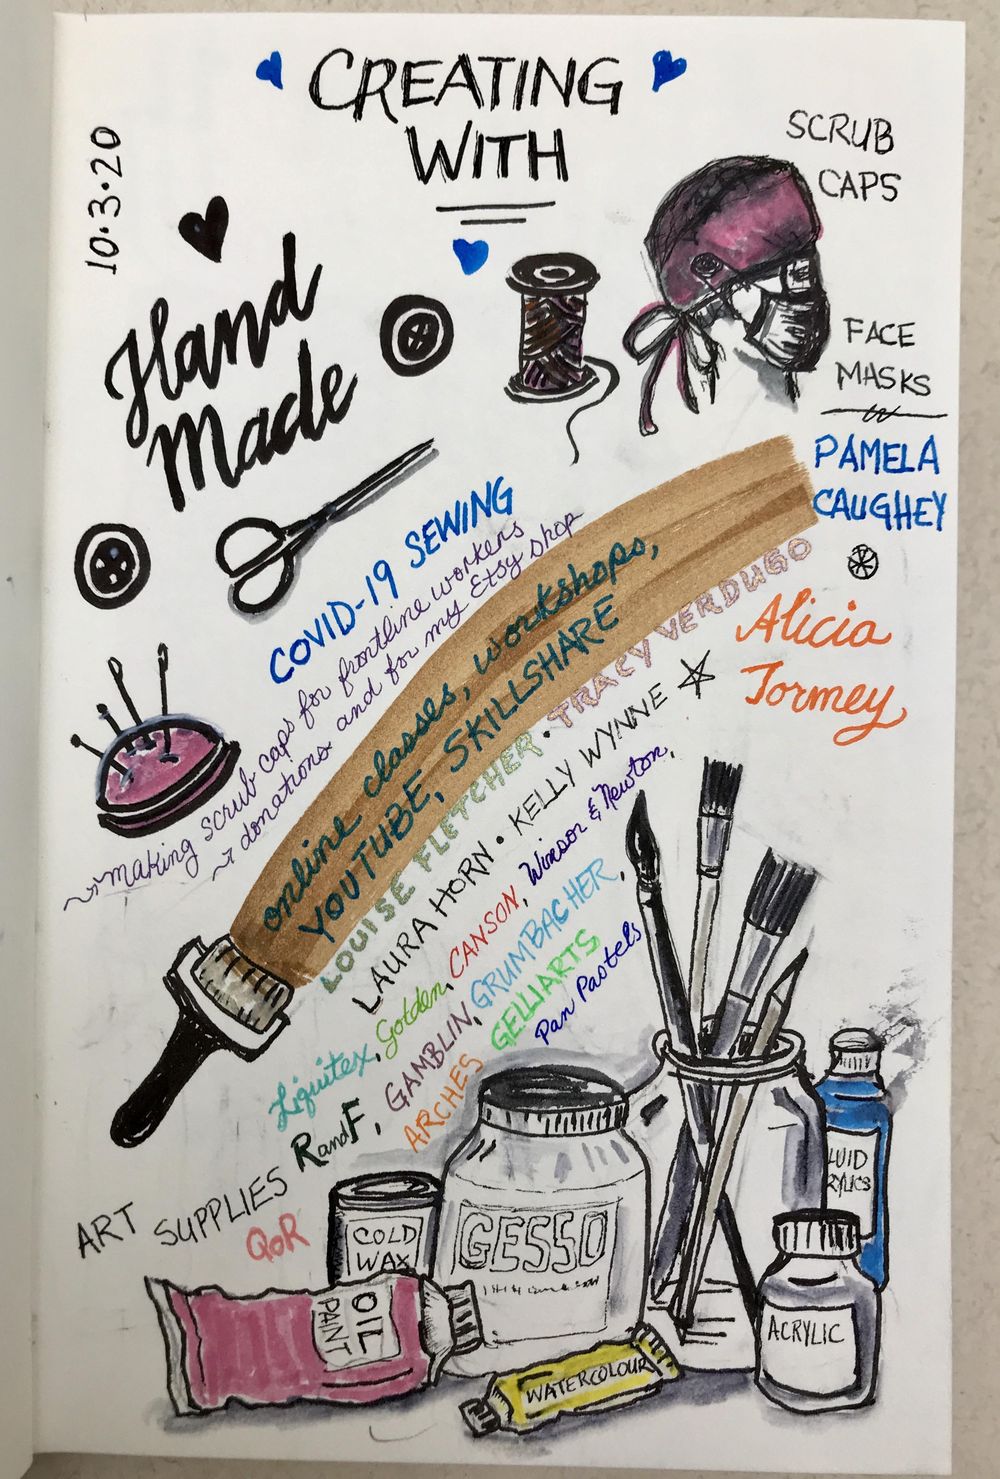 CREATING
WITH
10.3.20
SCRUB
CAPS
Hand
Made
FACE
MASKS
PAMELA
CAUGHEY
COVID-19 SEWING
making scrub caps for frontline workers
donations and for my Etsy shop
online classes, workshops,
YOUTUBE, SKILLSHARE
LOUISE FLETCHER • TRACY VERDUGO
Alicia
Tormey
LAURA HORN • KELLY WYNNE
Liquitex, Golden, CANSON, Winsor & Newton,
RandF, GAMBLIN, GRUMBACHER,
ARCHES GELLIARTS
Pan Pastels
ART SUPPLIES
QoR
COLD
WAX
GESSO
LUID
RYLICS
OIL
PAINT
WATERCOLOUR
ACRYLIC